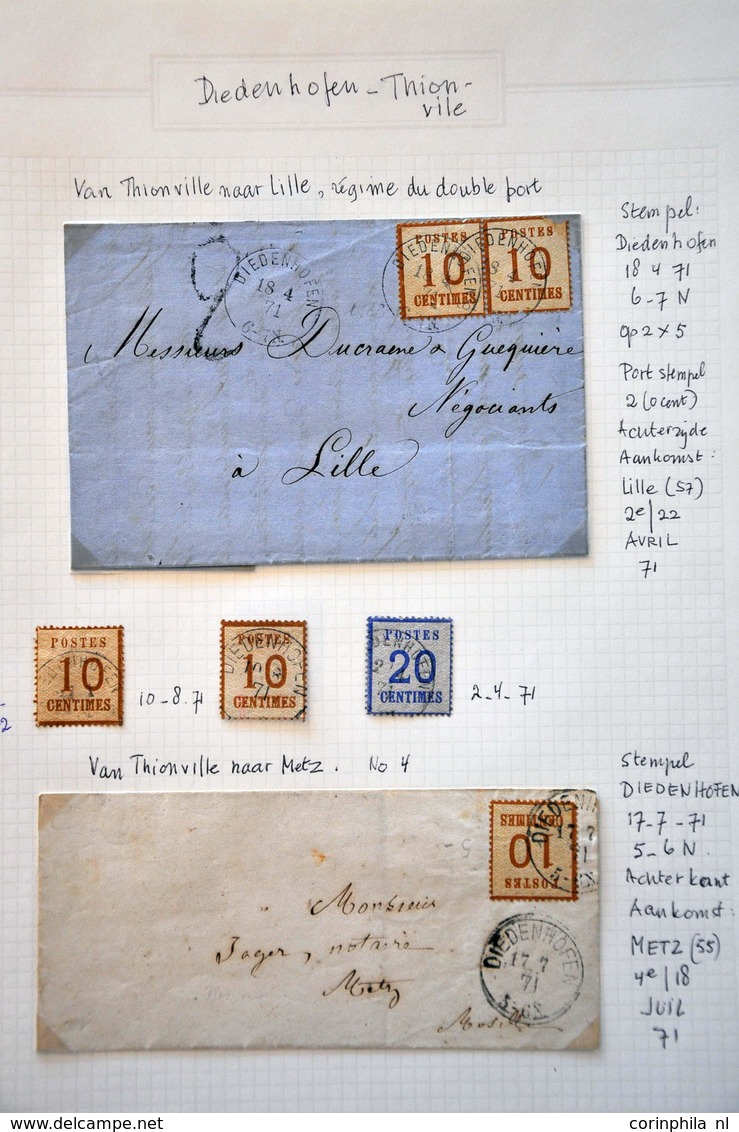 Diedenhofen - Thion-
vile
Van Thionville naar Lille, régime du double port
Stempel:
Diedenhofen
18 4 71
6-7 N
op 2 x 5
Port stempel
2 (0 cent)
Achterzyde
Aankomst:
Lille (57)
2e/22
AVRIL
71
DIEDENHOFEN
18 4
71
6-7N.
POSTES
10
CENTIMES
DIEDENHOFEN
POSTES
10
CENTIMES
DIEDENHOFEN
2
Messieurs Ducraene & Guequière
Négociants
à Lille
POSTES
10
CENTIMES
10-8.71
POSTES
10
CENTIMES
DIEDENHOFEN
71
POSTES
20
CENTIMES
2-4-71
2
Van Thionville naar Metz. No 4
Stempel
DIEDENHOFEN
17-7-71
5-6 N.
Achterkant
Aankomst:
METZ (55)
4e/18
JUIL
71
POSTES
10
CENTIMES
17 7
5-6N
Monsieur
Jager, notaire
Metz
DIEDENHOFEN
17 7
71
5-6N.
delcampe.net
corinphila nl